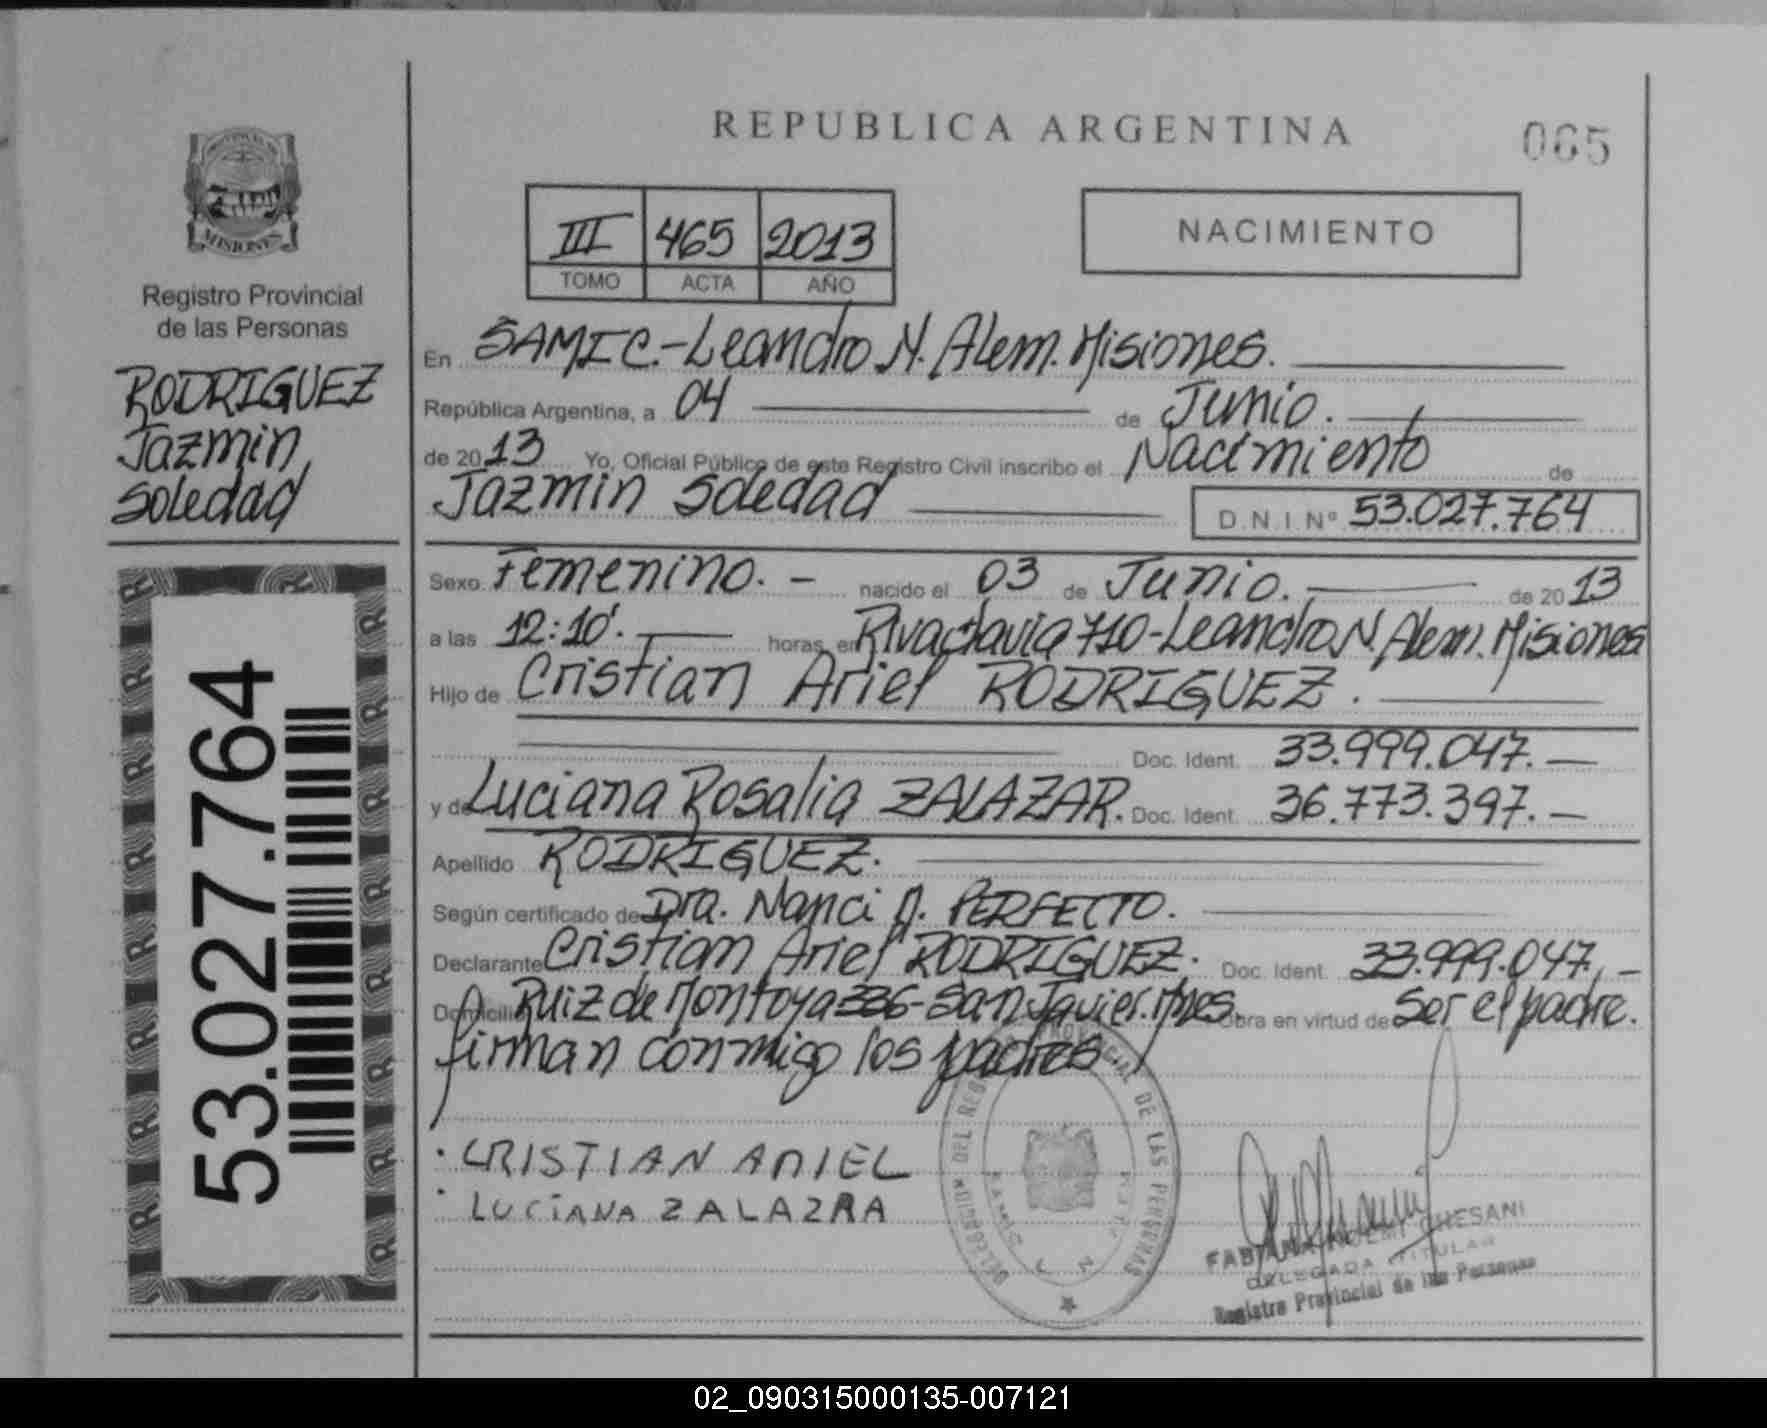 REPUBLICA ARGENTINA
065
MISIONES
Registro Provincial
de las Personas
RODRIGUEZ
Jazmin
Soledad
53.027.764
III 465 2013
TOMO ACTA AÑO
NACIMIENTO
En SAMIC.-Leandro N. Alem. Misiones.
República Argentina, a 04 de Junio.
de 2013 Yo, Oficial Público de este Registro Civil inscribo el Nacimiento de
Jazmin Soledad D.N.I.Nº 53.027.764
Sexo Femenino. - nacido el 03 de Junio. de 2013
a las 12:10'. horas, en Rivadavia 710-Leandro N. Alem. Misiones
Hijo de Cristian Ariel RODRIGUEZ.
Doc. Ident. 33.999.047.-
y de Luciana Rosalia ZALAZAR. Doc. Ident. 36.773.397.-
Apellido RODRIGUEZ.
Según certificado de Dra. Nanci A. PERFECTO.
Declarante Cristian Ariel RODRIGUEZ. Doc. Ident. 33.999.047.-
Domicilio Ruiz de Montoya 336-San Javier. Mnes. Obra en virtud de Ser el padre.
firman conmigo los padres
CRISTIAN ARIEL
LUCIANA ZALAZRA
DEL REG PROVINCIAL DE LAS PERSONAS
FABIANA NOEMI CHESANI
DELEGADA TITULAR
Registro Provincial de las Personas
02_090315000135-007121